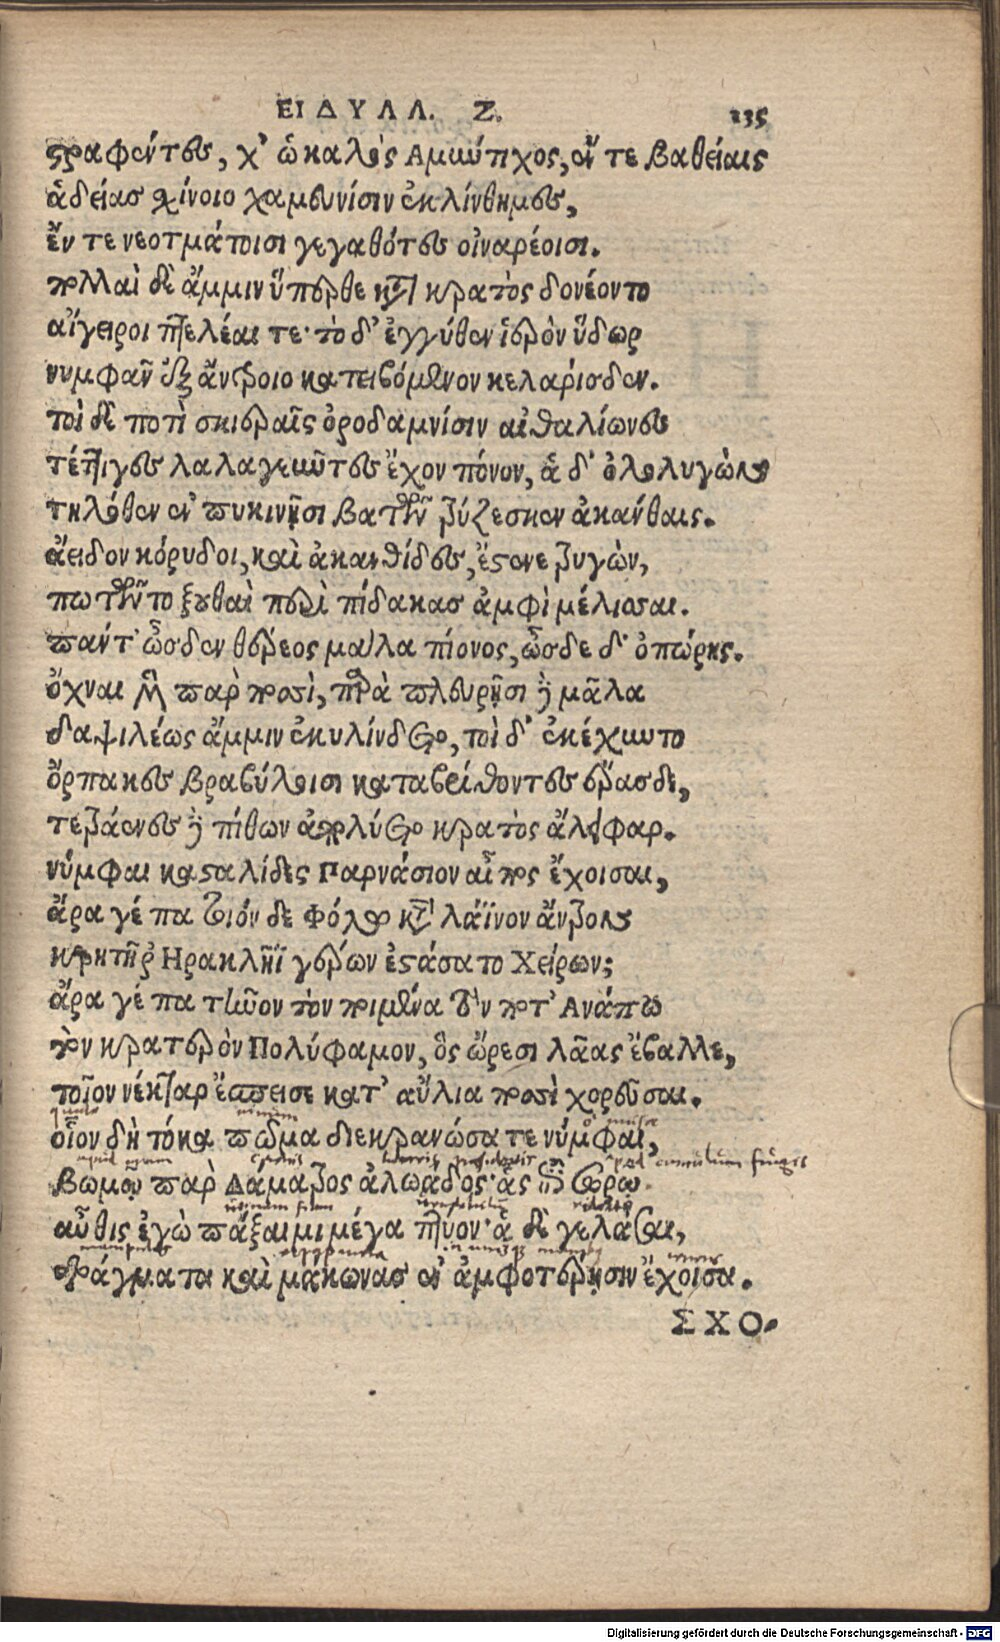 ΕΙΔΥΛΛ. Ζ. 235
στραφέντες, χ' ὡ καλὸς Αμύντιχος, ἔν τε βαθείαις
ἁδείας χίνοιο χαμευνίσιν ἐκλίνθημες,
ἔν τε νεοτμάτοισι γεγαθότες οἰναρέοισι.
πολλαὶ δὲ ἄμμιν ὕπερθε κατὰ κρατὸς δονέοντο
αἴγειροι πτελέαι τε· τὸ δ' ἐγγύθεν ἱερὸν ὕδωρ
νυμφᾶν ἐξ ἄντροιο κατειβόμενον κελάρισδεν.
τοὶ δὲ ποτὶ σκιεραῖς ὀροδαμνίσιν αἰθαλίωνες
τέττιγες λαλαγεῦντες ἔχον πόνον, ἁ δ' ὀλολυγὼν
τηλόθεν ἐν πυκινῇσι βάτων τρύζεσκεν ἀκάνθαις.
ἄειδον κόρυδοι, καὶ ἀκανθίδες, ἔστενε τρυγὼν,
πωτῶντο ξουθαὶ περὶ πίδακας ἀμφὶ μέλισσαι.
πάντ' ὦσδεν θέρεος μάλα πίονος, ὦσδε δ' ὀπώρης.
ὄχναι μὲν παρ ποσὶ, παρὰ πλευρῇσι δὲ μᾶλα
δαψιλέως ἄμμιν ἐκυλίνδετο, τοὶ δ' ἐκέχυντο
ὄρπακες βραβύλοισι καταβρίθοντες ἔρασδε,
τετράενες δὲ πίθων ἀπολύετο κρατὸς ἄλειφαρ.
νύμφαι κασταλίδες Παρνάσιον αἶπος ἔχοισαι,
ἆρα γέ πα τοιόν δε Φόλω κατὰ λάϊνον ἄντρον
κρητῆρ' Ηρακλῆϊ γέρων ἐστάσατο Χείρων;
ἆρα γέ πα τῆνον τὸν ποιμένα τὸν ποτ' Ανάπῳ
τὸν κρατερὸν Πολύφαμον, ὃς ὤρεσι λᾶας ἔβαλλε,
τοῖον νέκταρ ἔπεισε κατ' αὔλια ποσὶ χορεῦσαι.
οἷον δὴ τόκα πῶμα διεκρανώσατε νύμφαι,
βωμοῦ παρ Δάματρος ἁλωάδος· ἇς ἐπὶ σωρῷ
αὖθις ἐγὼ πάξαιμι μέγα πτύον· ἁ δὲ γελάσαι,
δράγματα καὶ μάκωνας ἐν ἀμφοτέρῃσιν ἔχοισα.
ΣΧΟ-
Digitalisierung gefördert durch die Deutsche Forschungsgemeinschaft - DFG